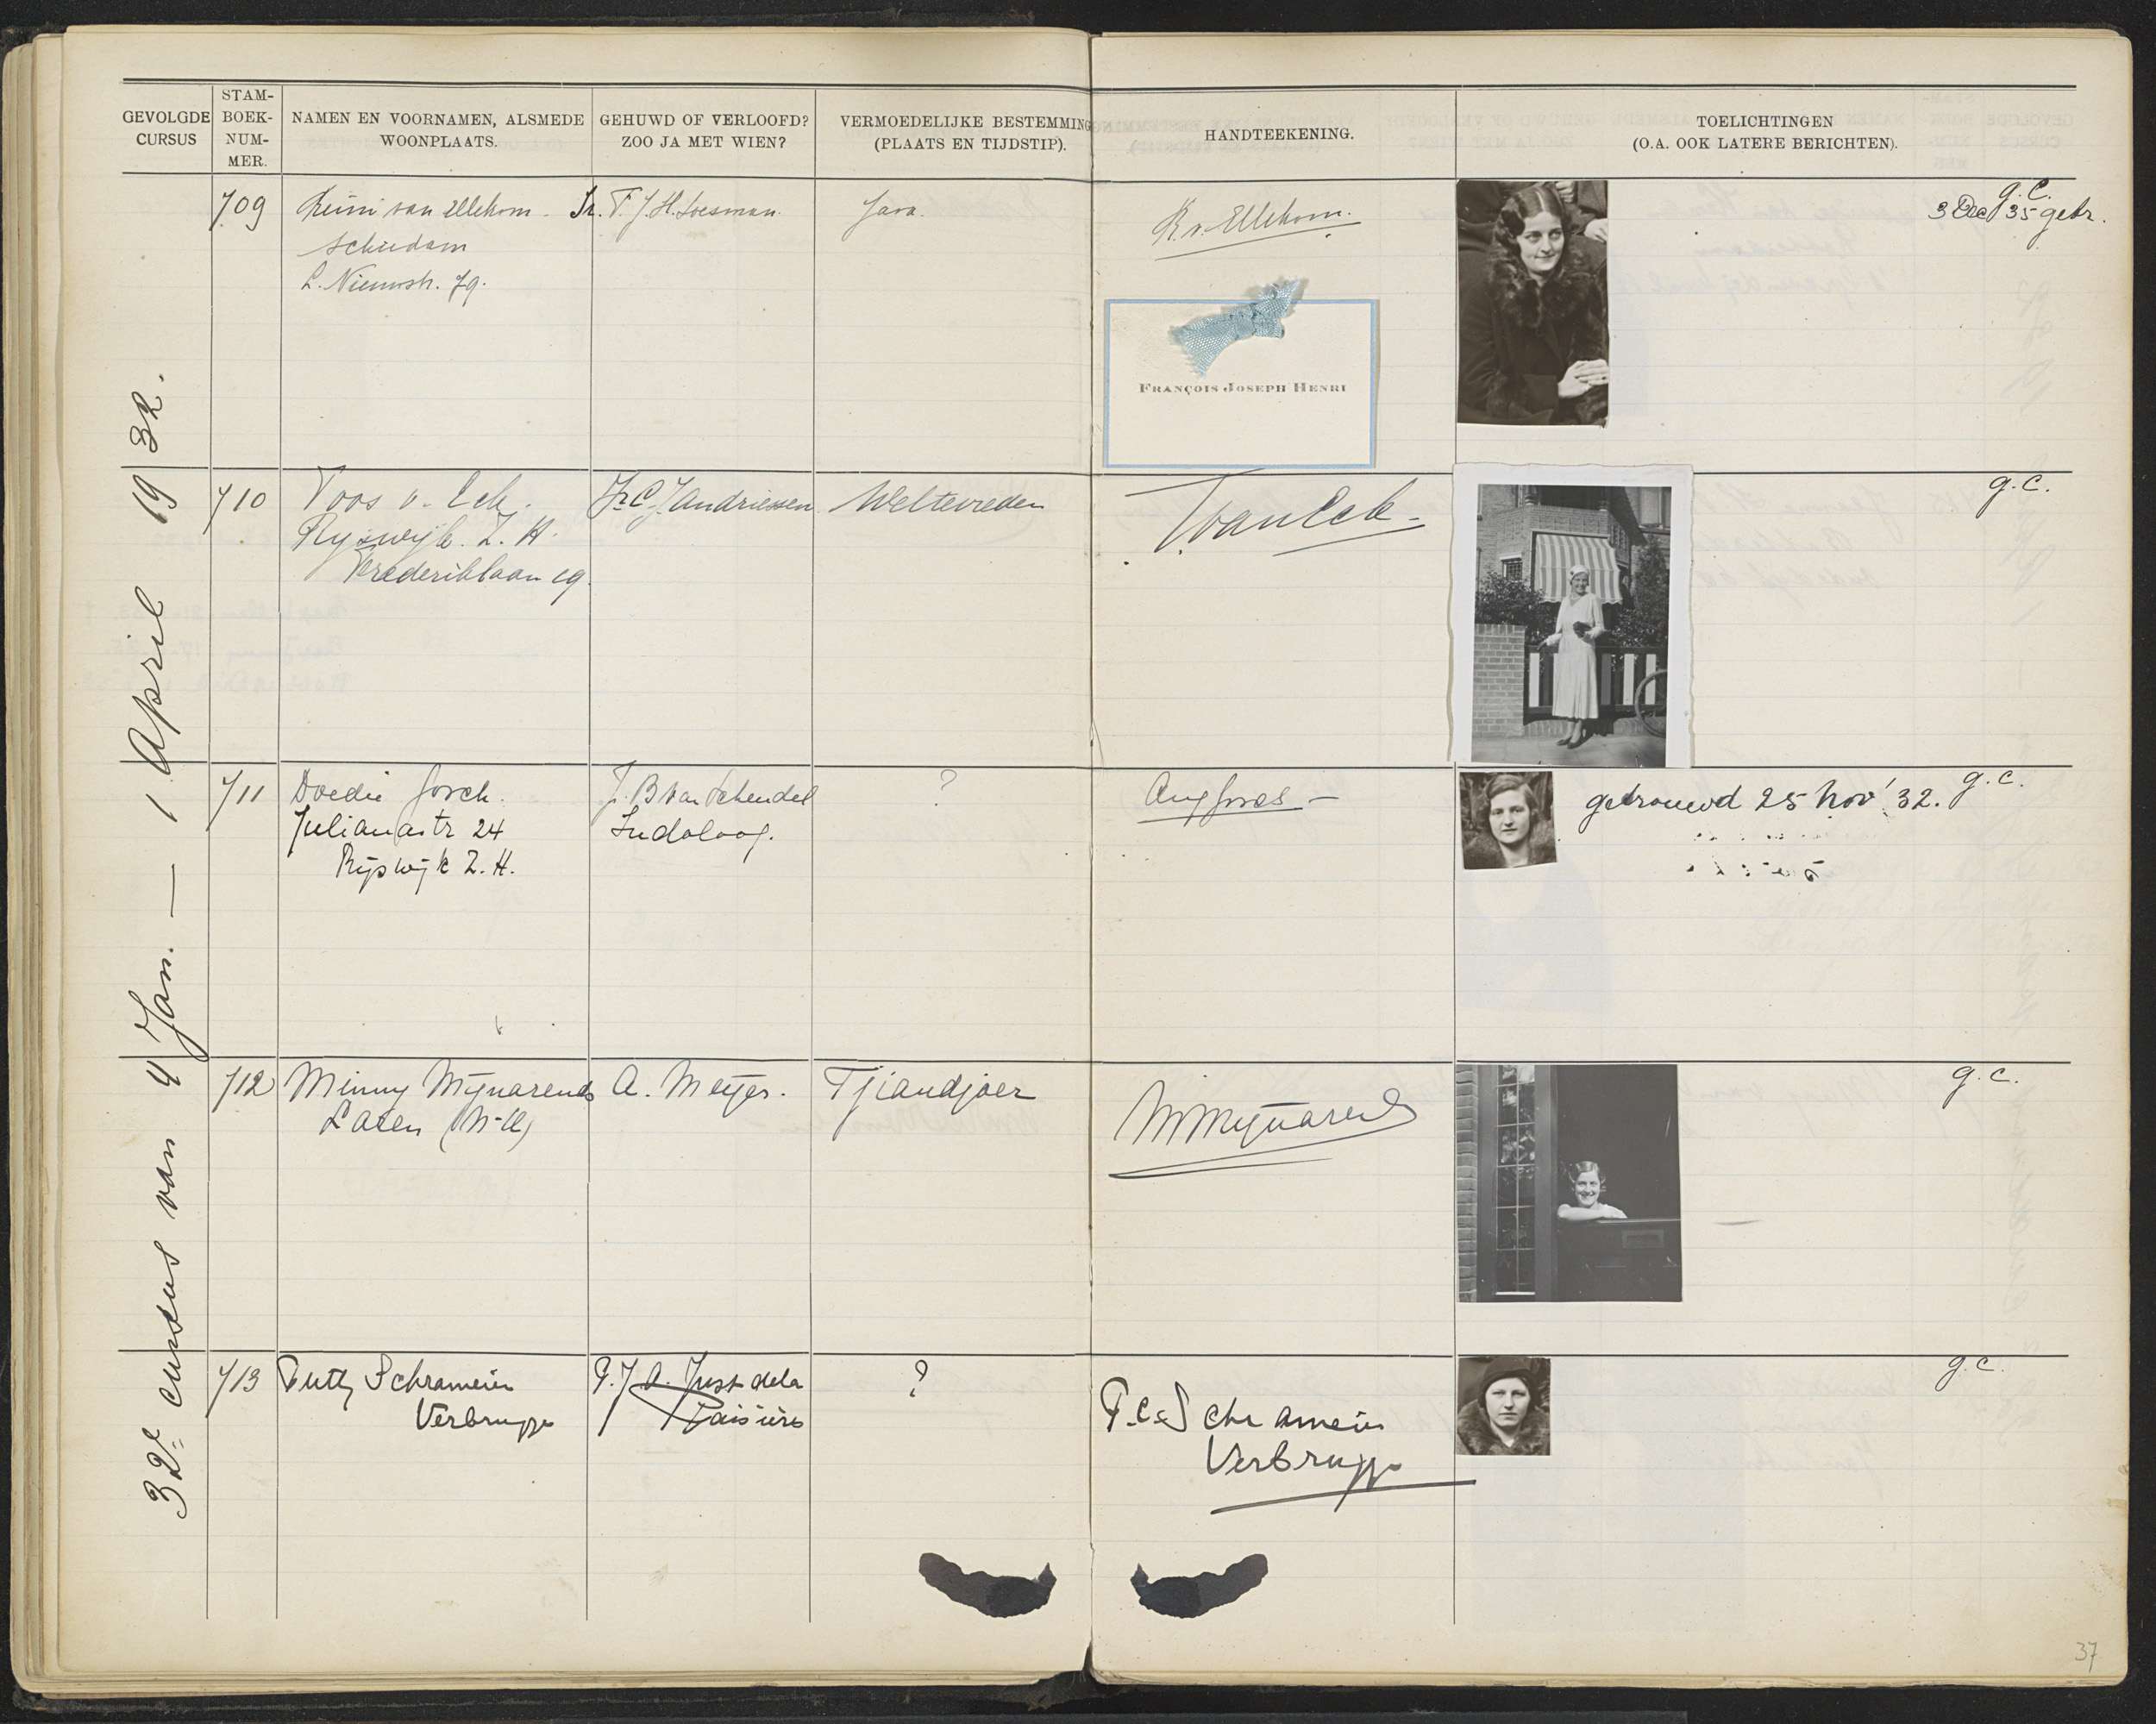 GEVOLGDE
CURSUS
STAM-
BOEK-
NUM-
MER.
NAMEN EN VOORNAMEN, ALSMEDE
WOONPLAATS.
GEHUWD OF VERLOOFD?
ZOO JA MET WIEN?
VERMOEDELIJKE BESTEMMING
(PLAATS EN TIJDSTIP).
HANDTEEKENING.
TOELICHTINGEN
(O.A. OOK LATERE BERICHTEN).
32e cursus van 4 Jan. — 1 April 1932.
709
van Ellekom.
Schiedam
L. Nieuwstr. 79.
Ir. F. J. H. Soesman.
Java.
R. v. Ellekom.
FRANÇOIS JOSEPH HENRI
g.C.
3 Dec 35 getr.
710
Toos v. Eck.
Ryswijk. Z. H.
Frederiklaan 19.
Ir C. J. Andriessen
Weltevreden
T. van Eck
g.c.
711
Doedie
Julianastr 24
Rijswijk Z. H.
J. B van Schendel
Indoloog.
?
getrouwd 25 Nov' 32.
g.c.
712
Minny Mijnarends
Laren (N-H)
A. Meijer.
Tjiandjoer
M Mijnarends
g.c.
713
Schrameier
Verbrugge
A. Just de la
Paisières
?
F.C. Schrameier
Verbrugge
g.c.
37